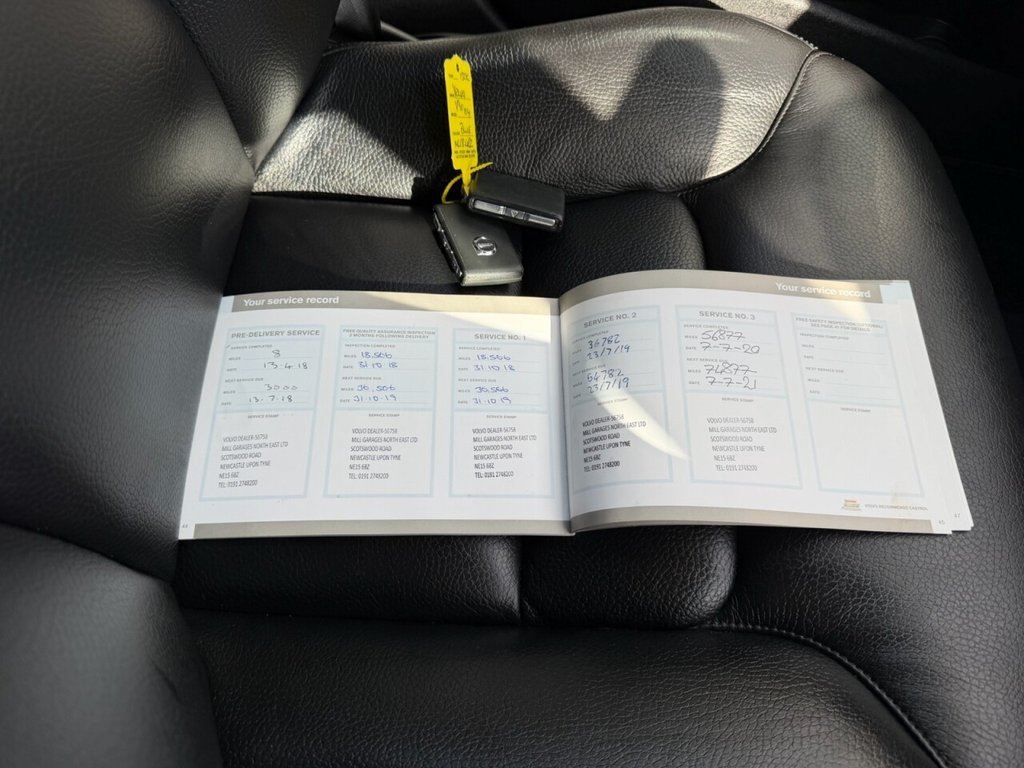 Volvo
Blue
Your service record
PRE-DELIVERY SERVICE
SERVICE COMPLETED
MILES 8
DATE 13.4.18
NEXT SERVICE DUE
MILES 3000
DATE 13.7.18
SERVICE STAMP
VOLVO DEALER-56758
MILL GARAGES NORTH EAST LTD
SCOTSWOOD ROAD
NEWCASTLE UPON TYNE
NE15 6BZ
TEL: 0191 2748200
44
FREE QUALITY ASSURANCE INSPECTION
2 MONTHS FOLLOWING DELIVERY
INSPECTION COMPLETED
MILES 18,566
DATE 31.10.18
NEXT SERVICE DUE
MILES 36,566
DATE 31.10.19
SERVICE STAMP
VOLVO DEALER-56758
MILL GARAGES NORTH EAST LTD
SCOTSWOOD ROAD
NEWCASTLE UPON TYNE
NE15 6BZ
TEL: 0191 2748200
SERVICE NO. 1
SERVICE COMPLETED
MILES 18,566
DATE 31.10.18
NEXT SERVICE DUE
MILES 36,566
DATE 31.10.19
SERVICE STAMP
VOLVO DEALER-56758
MILL GARAGES NORTH EAST LTD
SCOTSWOOD ROAD
NEWCASTLE UPON TYNE
NE15 6BZ
TEL: 0191 2748200
Your service record
SERVICE NO. 2
SERVICE COMPLETED
MILES 36782
DATE 23/7/19
NEXT SERVICE DUE
MILES 54782
DATE 23/7/19
SERVICE STAMP
VOLVO DEALER-56758
MILL GARAGES NORTH EAST LTD
SCOTSWOOD ROAD
NEWCASTLE UPON TYNE
NE15 6BZ
TEL: 0191 2748200
SERVICE NO. 3
SERVICE COMPLETED
MILES 56877
DATE 7-7-20
NEXT SERVICE DUE
MILES 74877
DATE 7-7-21
SERVICE STAMP
VOLVO DEALER-56758
MILL GARAGES NORTH EAST LTD
SCOTSWOOD ROAD
NEWCASTLE UPON TYNE
NE15 6BZ
TEL: 0191 2748200
FREE SAFETY INSPECTION (OPTIONAL)
SEE PAGE 41 FOR DETAILS
INSPECTION COMPLETED
MILES
DATE
NEXT SERVICE DUE
MILES
DATE
SERVICE STAMP
VOLVO RECOMMENDS CASTROL
45
47